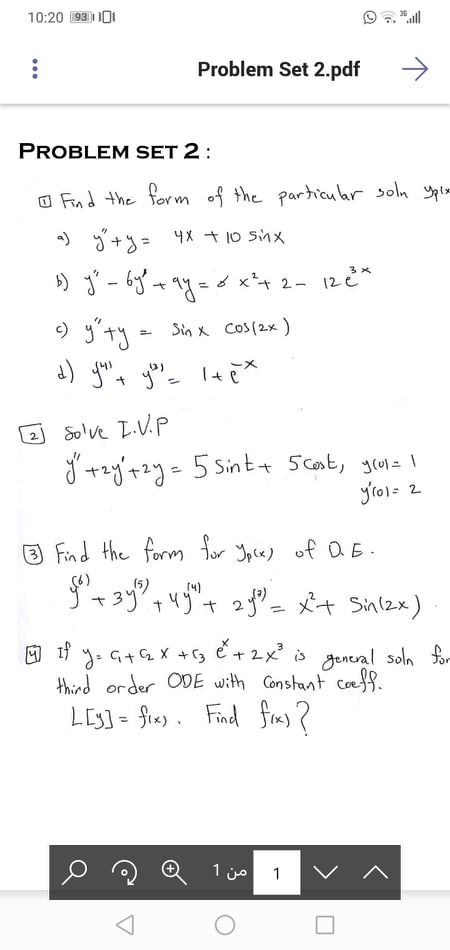 10:20 93 3G
Problem Set 2.pdf
PROBLEM SET 2 :
1 Find the form of the particular soln yp(x
a) y'' + y = 4x + 10 sinx
b) y'' - 6y' + 9y = 6 x² + 2 - 12 e³ˣ
c) y'' + y = Sin x cos(2x)
d) y⁽⁴⁾ + y⁽³⁾ = 1 + e⁻ˣ
2 Solve I.V.P
y'' + 2y' + 2y = 5 Sint + 5 Cost, y(0) = 1
y'(0) = 2
3 Find the form for yp(x) of D.E.
y⁽⁶⁾ + 3y⁽⁵⁾ + 4y⁽⁴⁾ + 2y⁽³⁾ = x² + Sin(2x)
4 If y = C₁ + C₂ x + C₃ eˣ + 2x³ is general soln for
third order ODE with Constant coeff.
L[y] = f(x). Find f(x)?
1 من 1